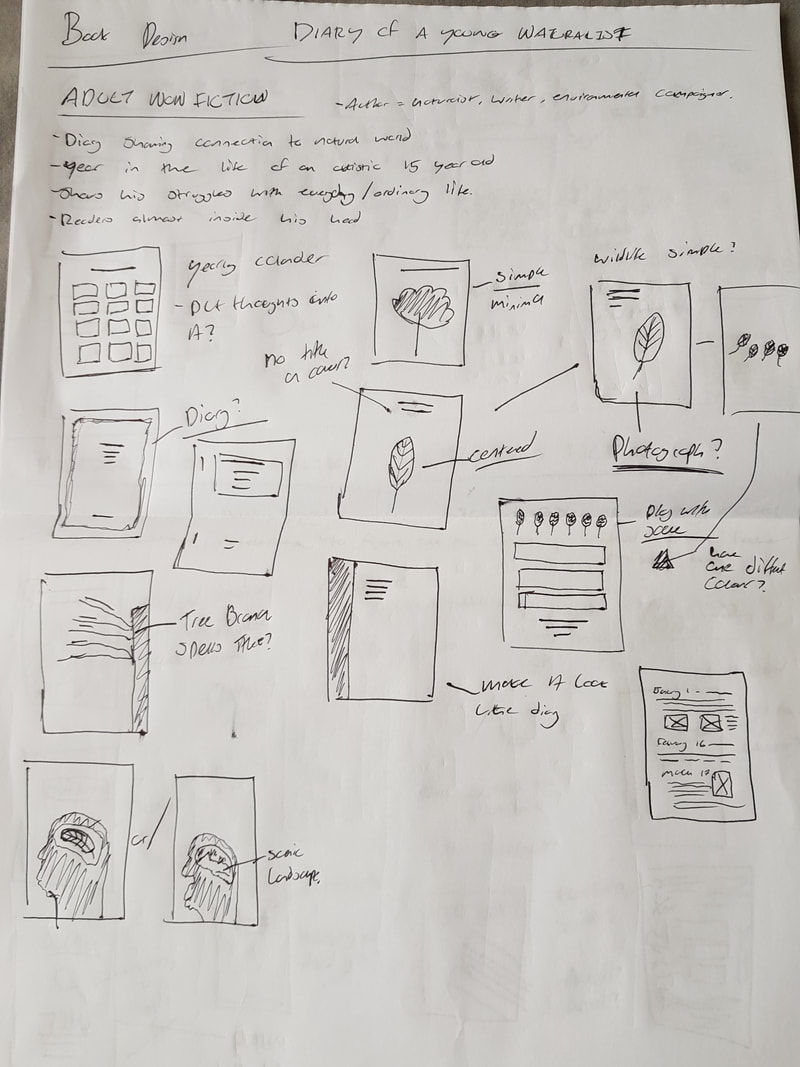 Book Design
DIARY OF A YOUNG NATURALIST
ADULT NON FICTION
- Author = naturalist, writer, environmental campaigner.
- Diary showing connection to natural world
- Year in the life of an autistic 15 year old
- Shows his struggles with everyday/ordinary life.
- Readers almost inside his head
yearly calander
- Put thoughts into
it?
simple
minimal
wildlife simple?
no title
on cover?
Diary?
centered
Photograph?
Play with
scale
have
one different
colour?
Tree Branch
spells title?
make it look
like diary
January 1
January 16
March 17
or
scenic
landscape.